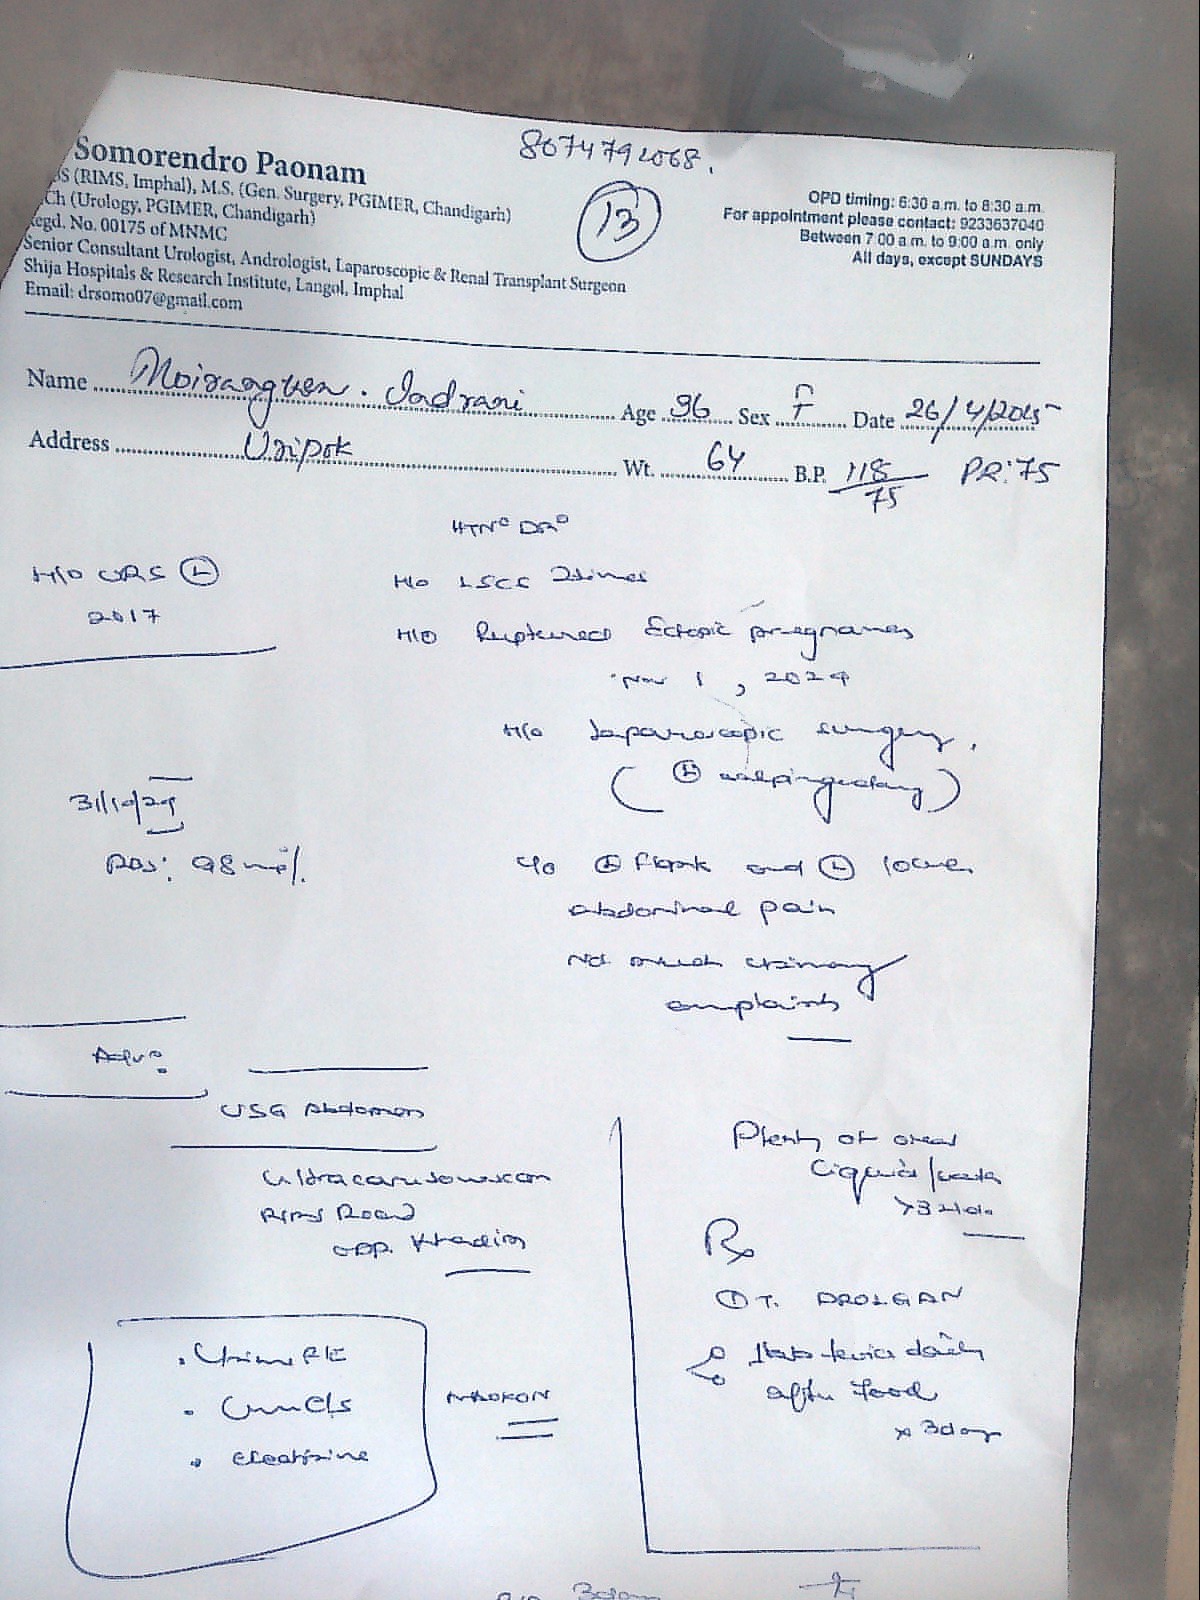 8074792068.
Somorendro Paonam
BS (RIMS, Imphal), M.S. (Gen. Surgery, PGIMER, Chandigarh)
Ch (Urology, PGIMER, Chandigarh)
Regd. No. 00175 of MNMC
Senior Consultant Urologist, Andrologist, Laparoscopic & Renal Transplant Surgeon
Shija Hospitals & Research Institute, Langol, Imphal
Email: drsomo07@gmail.com
13
OPD timing: 6:30 a.m. to 8:30 a.m.
For appointment please contact: 9233637040
Between 7:00 a.m. to 9:00 a.m. only
All days, except SUNDAYS
Name Indrani Age 36 Sex F Date 26/4/2025
Address Uripok Wt. 64 B.P. 118/75 PR: 75
H/o URS (L)
2017
H/o LSCS 2times
H/o Ruptured Ectopic pregnancy
Nov 1, 2024
H/o laparoscopic surgery.
((L) salpingectomy)
31/10/24
RBS: 98 mg%
C/o (L) flank and (L) lower
abdominal pain
No much urinary
complaints
Adv:
USG Abdomen
RIMS Road
opp. Khadim
Plenty of oral
liquid
Rx
(1) T. DROLGAN
1tab twice daily
after food
x 3days
. Urine RE
. Urine C/s
. creatinine